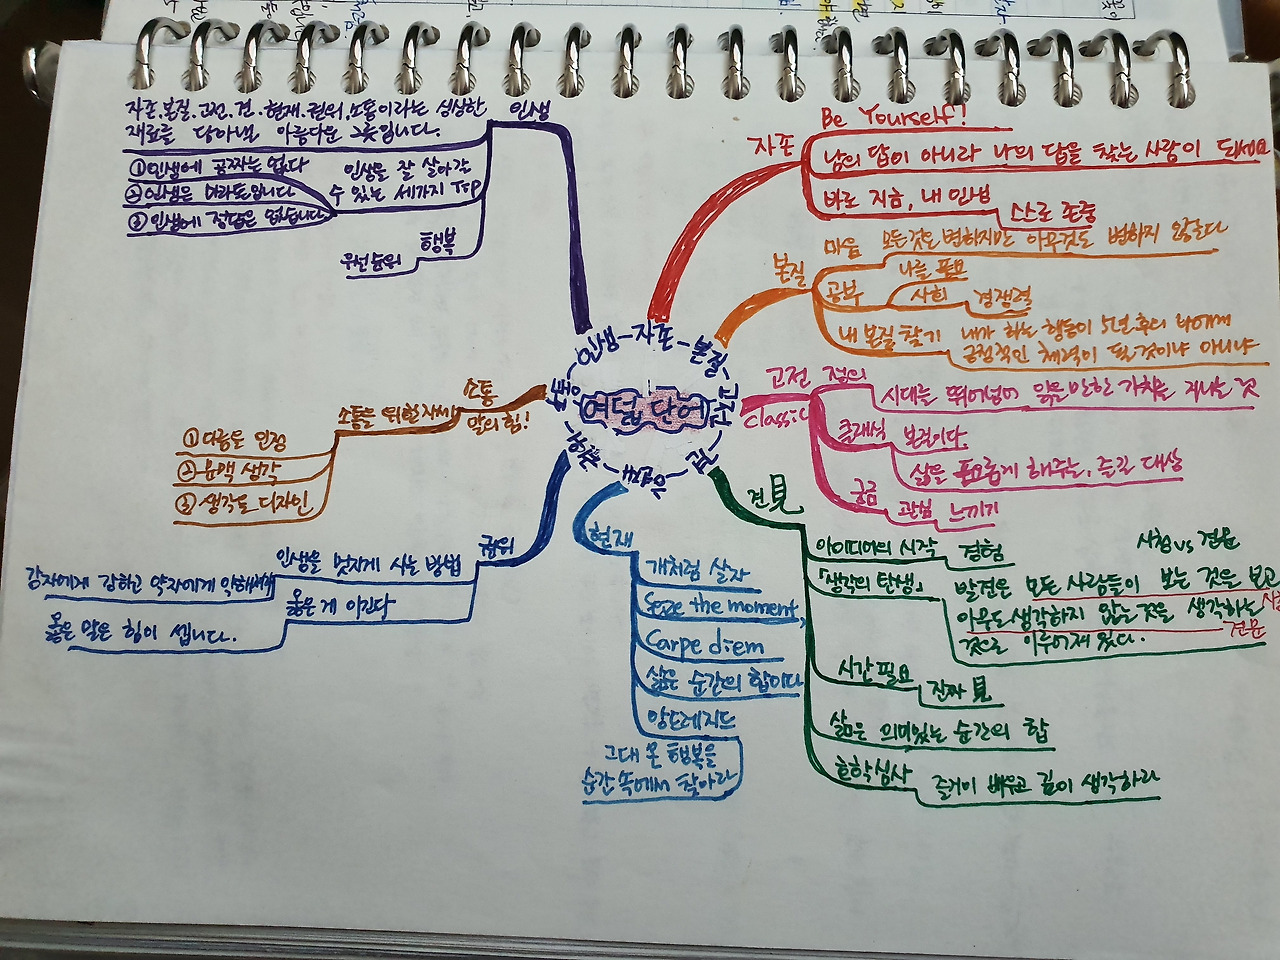 여덟 단어
인생 - 자존 - 본질
고전
견
현재
권위
소통
자존
Be Yourself!
남의 답이 아니라 나의 답을 찾는 사람이 되세요
바로 지금, 내 인생
스스로 존중
본질
마음
모든것은 변하지만 아무것도 변하지 않는다
공부
나를 필요
사회
경쟁력
내 본질 찾기
내가 하는 행동이 5년 후의 나에게
긍정적인 체력이 될 것이냐 아니냐
고전
Classic
정의
시대를 뛰어넘어
가치를 지니는 것
클래식
본질이다.
삶을 풍요롭게 해주는, 즐길 대상
궁금
관심
느끼기
견見
아이디어의 시작
경험
시청 vs 견문
「생각의 탄생」
발견은 모든 사람들이 보는 것을 보고
아무도 생각하지 않는 것을 생각하는
견문
것으로 이루어져 있다.
시간 필요
진짜 見
삶은 의미있는 순간의 합
호학심사
즐거이 배우고 깊이 생각하라
현재
개처럼 살자
Seize the moment,
Carpe diem
삶은 순간의 합이다
앙드레지드
그대 온 행복을
순간 속에서 찾아라
권위
인생을 멋지게 사는 방법
강자에게 강하고 약자에게 약해져라
옳은 게 이긴다
옳은 말은 힘이 셉니다.
소통
말의 힘!
소통을 위한 자세
①다름을 인정
②문맥 생각
③생각을 디자인
인생
자존.본질.고전.견.현재.권위.소통이라는 싱싱한
재료를 담아낼 아름다운 그릇입니다.
인생을 잘 살아갈
수 있는 세가지 Tip
①인생에 공짜는 없다
②인생은 마라톤입니다
③인생에 정답은 없습니다.
행복